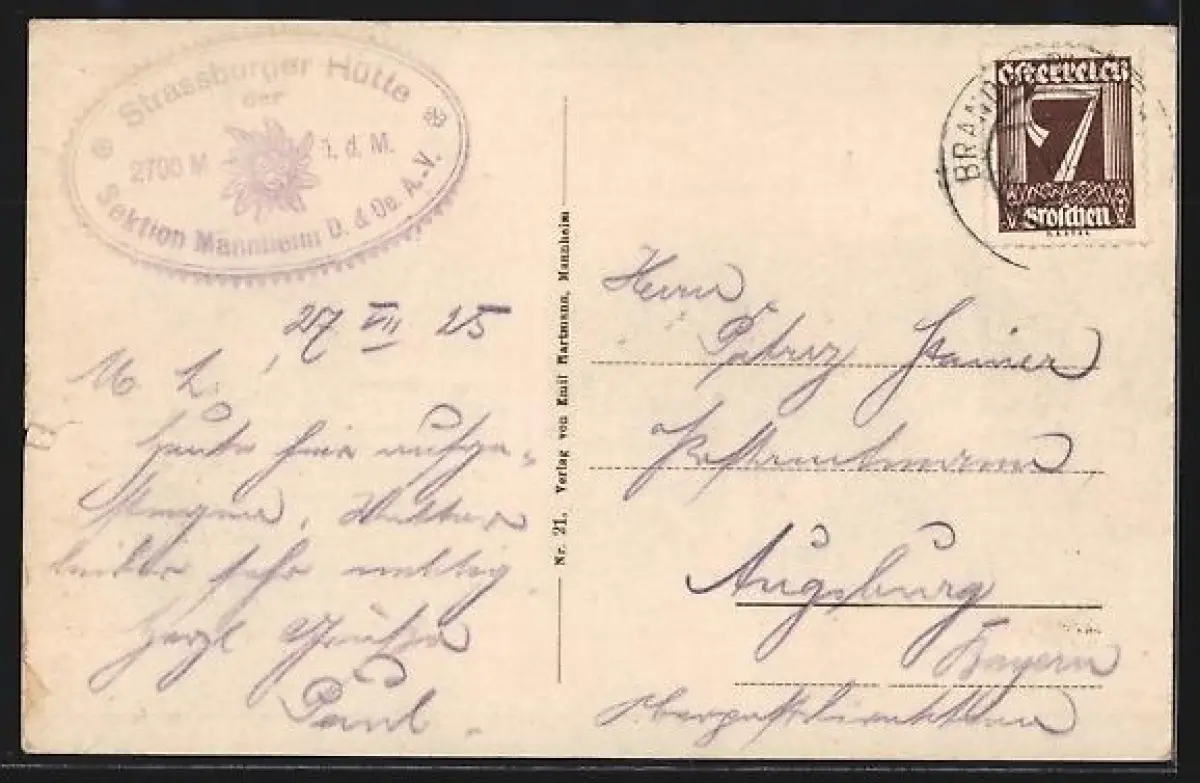 Strassburger Hütte
der
2700 M ü. d. M.
Sektion Mannheim D. & Oe. A.-V.
BRAND
Österreich
7
Groschen
27 VII 25
M. L.
heute hier aufge-
stiegen, Wetter
leider sehr neblig
herzl Grüße
Paul.
Nr. 21. Verlag von Emil Hartmann, Mannheim
Herrn
Patriz
Postamtmann
Augsburg
Bayern
Oberpostdirektion